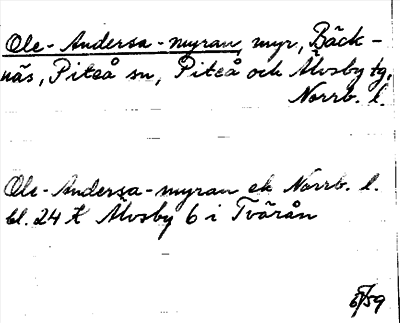 Ole-Andersa-myran, myr, Bäck-
näs, Piteå sn, Piteå och Älvsby tg,
Norrb. l.
Ole-Andersa-myran ek Norrb. l.
bl. 24 Älvsby 6 i Tvärån